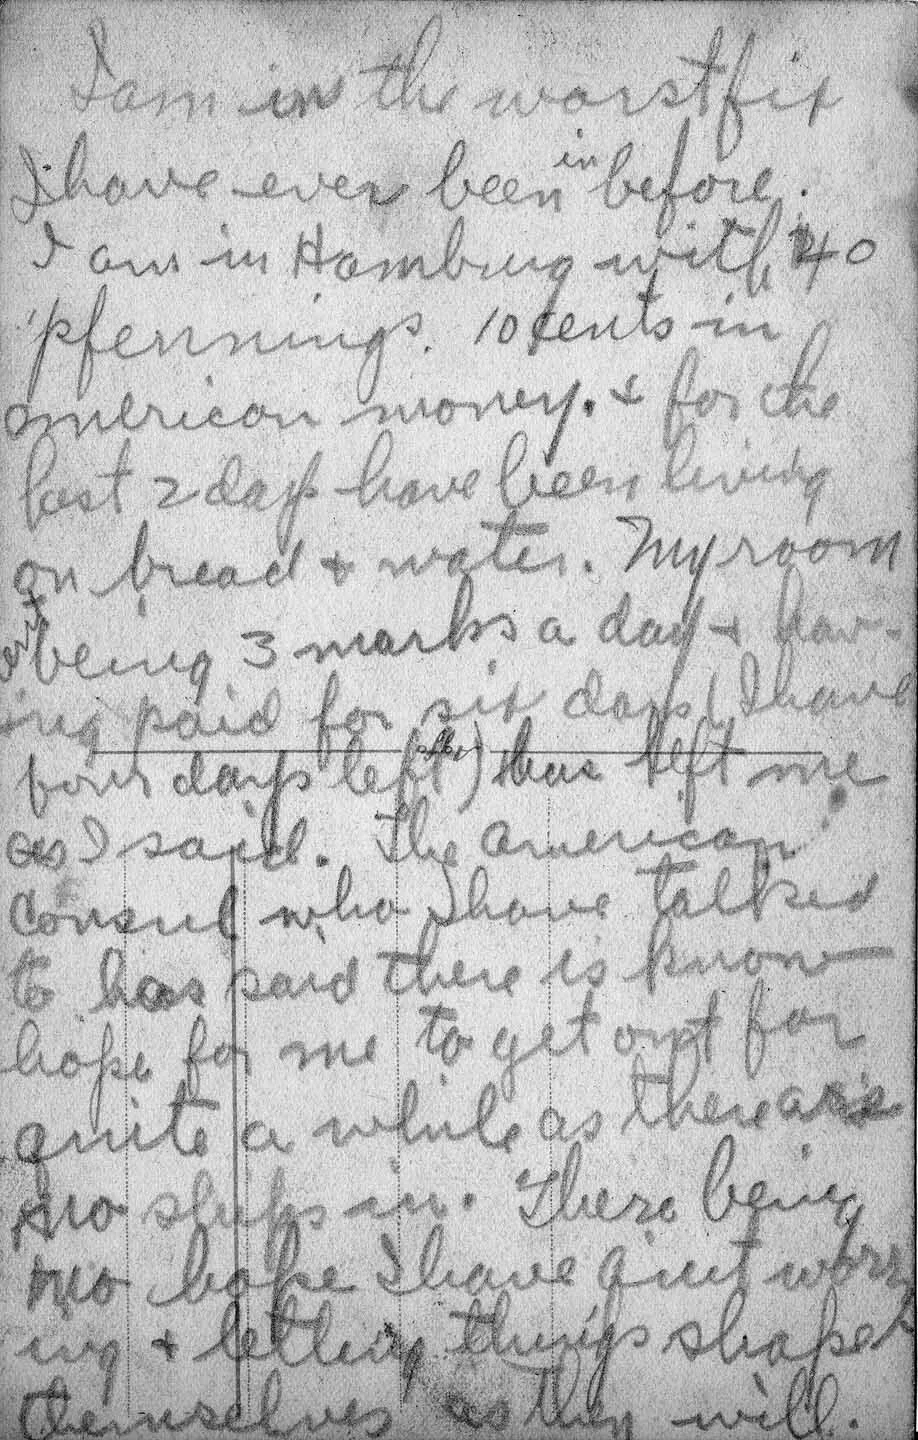 I am in the worst fix
I have ever been in before.
I am in Hamburg with 40
pfennings. 10 cents in
american money. & for the
last 2 days have been living
on bread & water. My room
being 3 marks a day & hav-
ing paid for six days (I have
four days left) has left me
as I said. The American
Consul who I have talked
to has said there is know
hope for me to get out for
quite a while as there are
no ships in. There being
no hope I have quit worr
ing & letting things shape
themselves as they will.